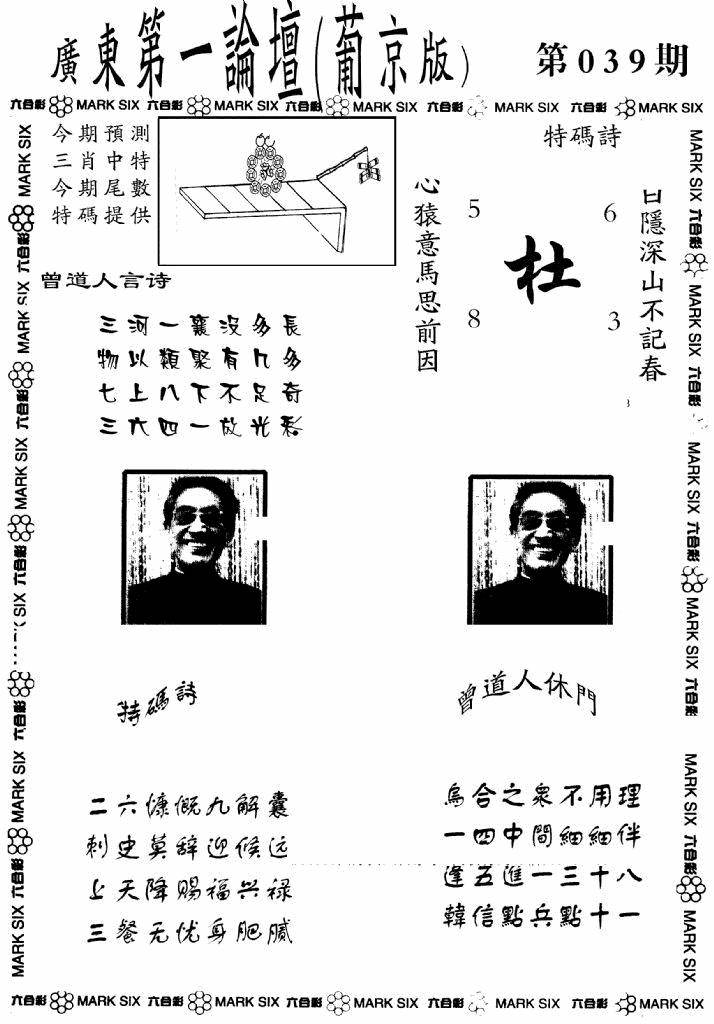 廣東第一論壇(葡京版)
第039期
六合彩 MARK SIX 六合彩 MARK SIX 六合彩 MARK SIX 六合彩 MARK SIX 六合彩 MARK SIX
今期預測
三肖中特
今期尾數
特碼提供
特碼詩
心猿意馬思前因
5
6
杜
8
3
日隱深山不記春
曾道人言诗
三河一襄没多長
物以類聚有几多
七上八下不足奇
三六四一放光彩
特碼詩
二六慷慨九解囊
刺史莫辞迎候远
上天降赐福兴禄
三餐无忧身肥腻
曾道人休門
烏合之衆不用理
一四中間細細伴
逢五進一三十八
韓信點兵點十一
MARK SIX 六合彩 MARK SIX 六合彩 MARK SIX 六合彩 MARK SIX 六合彩 MARK SIX 六合彩 MARK SIX
MARK SIX 六合彩 MARK SIX 六合彩 MARK SIX 六合彩 MARK SIX 六合彩 MARK SIX 六合彩 MARK SIX
六合彩 MARK SIX 六合彩 MARK SIX 六合彩 MARK SIX 六合彩 MARK SIX 六合彩 MARK SIX